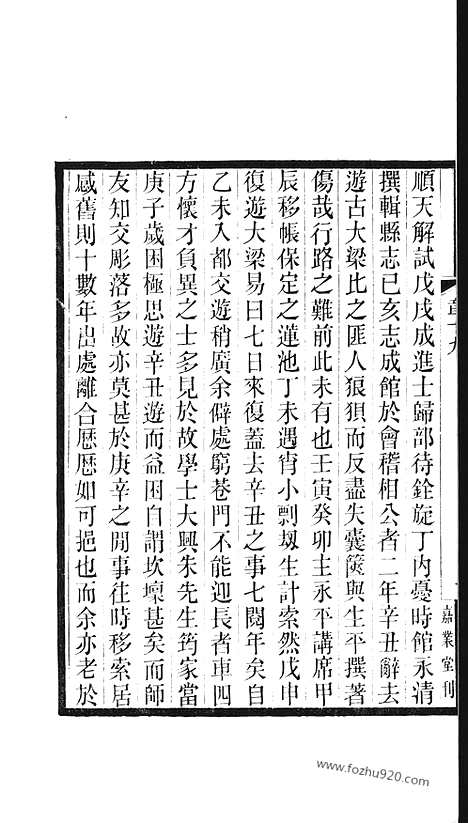 順天解試戊戌成進士歸部待銓旋丁內憂時館永清
撰輯縣志己亥志成館於會稽相公者二年辛丑辭去
遊古大梁比之匪人狼狽而反盡失囊篋與生平撰著
傷哉行路之難前此未有也壬寅癸卯主永平講席甲
辰移帳保定之蓮池丁未遇宵小剽刼生計索然戊申
復遊大梁易曰七日來復蓋去辛丑之事七閱年矣自
乙未入都交遊稍廣余僻處窮巷門不能迎長者車四
方懷才負異之士多見於故學士大興朱先生筠家當
庚子歲困極思遊辛丑遊而益困自謂坎壈甚矣而師
友知交彫落多故亦莫甚於庚辛之閒事往時移索居
感舊則十數年出處離合歷歷如可挹也而余亦老於
嘉業堂刊
www.fozhu920.com